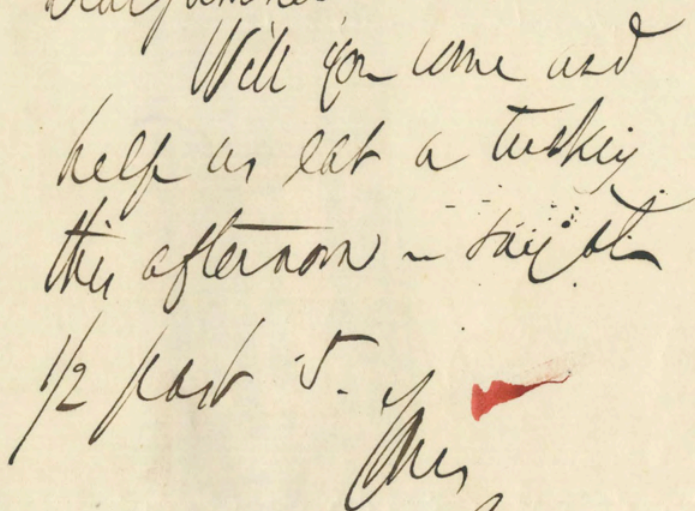 Dear
Will you come and
help us eat a turkey
this afternoon - say at
1/2 past 5.
Yours